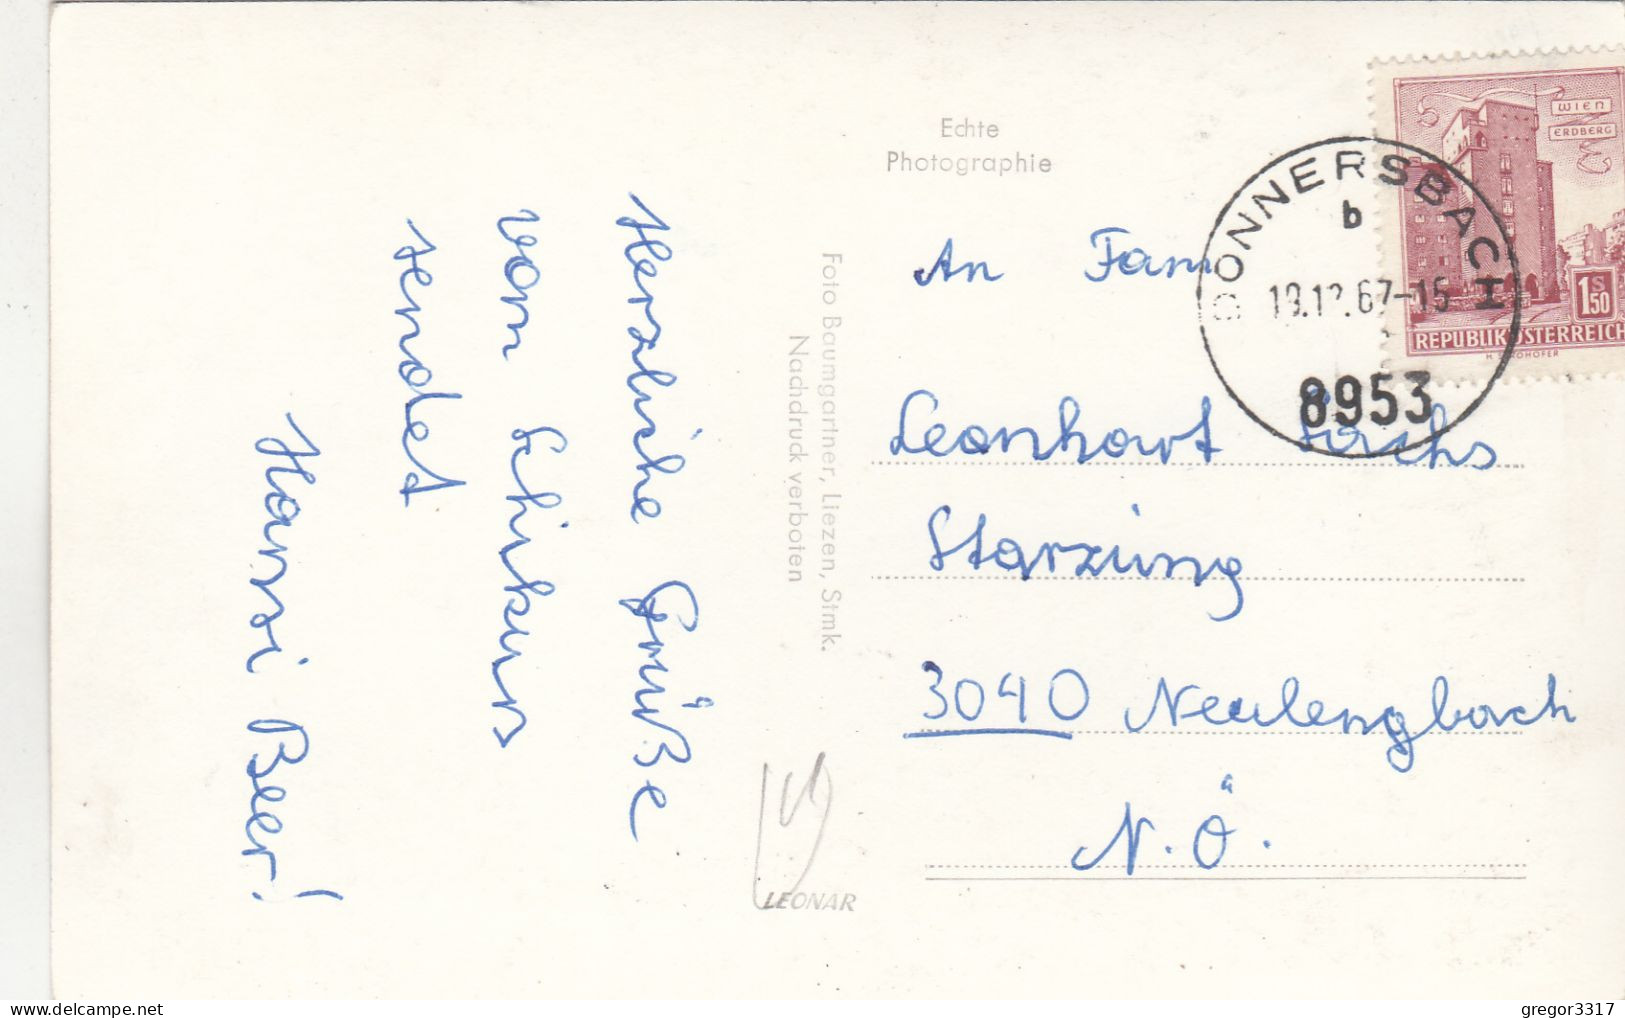 Herzliche Grüße
vom Schikurs
sendet
Hansi Beer!
Foto Baumgartner, Liezen, Stmk.
Nachdruck verboten
Echte
Photographie
An Fam
Leonhart
Starzing
3040 Neulengbach
N.Ö.
LEONAR
WIEN
ERDBERG
S
1.50
REPUBLIK ÖSTERREICH
DONNERSBACH
b
67-15
8953
delcampe.net
gregor3317